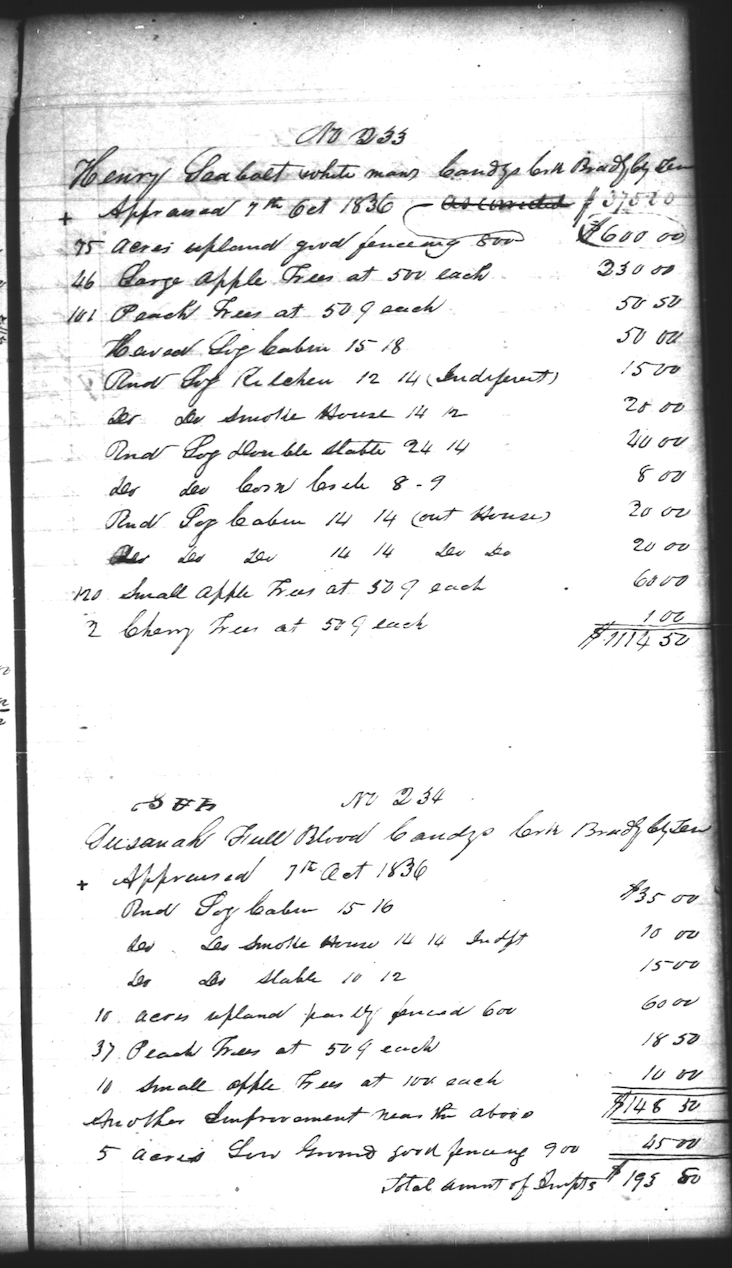 No 233
Henry Seabolt white man Candys Crk Bradly Cty Ten
+ Appraised 7th Oct 1836 as corrected $ 375 20
75 acres upland good fencing 800 $600 00
46 Large Apple Trees at 500 each 230 00
101 Peach Trees at 50 ¢ each 50 50
Hewed Log Cabin 15 18 50 00
Rnd Log Kitchen 12 14 (Indiferent) 15 00
Do Do Smoke House 14 12 20 00
Rnd Log Double Stable 24 14 40 00
Do Do Corn Crib 8 - 9 8 00
Rnd Log Cabin 14 14 (out House) 20 00
Do Do Do 14 14 Do Do 20 00
120 Small Apple Trees at 50 ¢ each 60 00
2 Cherry Trees at 50 ¢ each 1 00
$1114 50
No 234
Susanah Full Blood Candys Crk Bradly Cty Ten
+ Appraised 7th Oct 1836
Rnd Log Cabin 15 16 $35 00
Do Do Smoke House 14 14 Indft 10 00
Do Do Stable 10 12 15 00
10 acres upland partly fenced 600 60 00
37 Peach Trees at 50 ¢ each 18 50
10 Small apple Trees at 100 each 10 00
Another Improvement near the above $148 50
5 acres Low Ground good fencing 900 45 00
Total Amnt of Impts $ 193 50